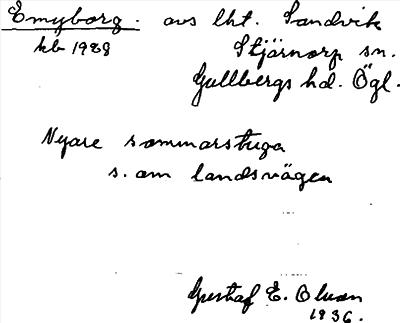 Emyborg. avs lht. Sandvik
kb 1928 Stjärnorp sn.
Gullbergs hd. Ögl.
Nyare sommarstuga
s. om landsvägen
Gustaf E. Olsson
1936.